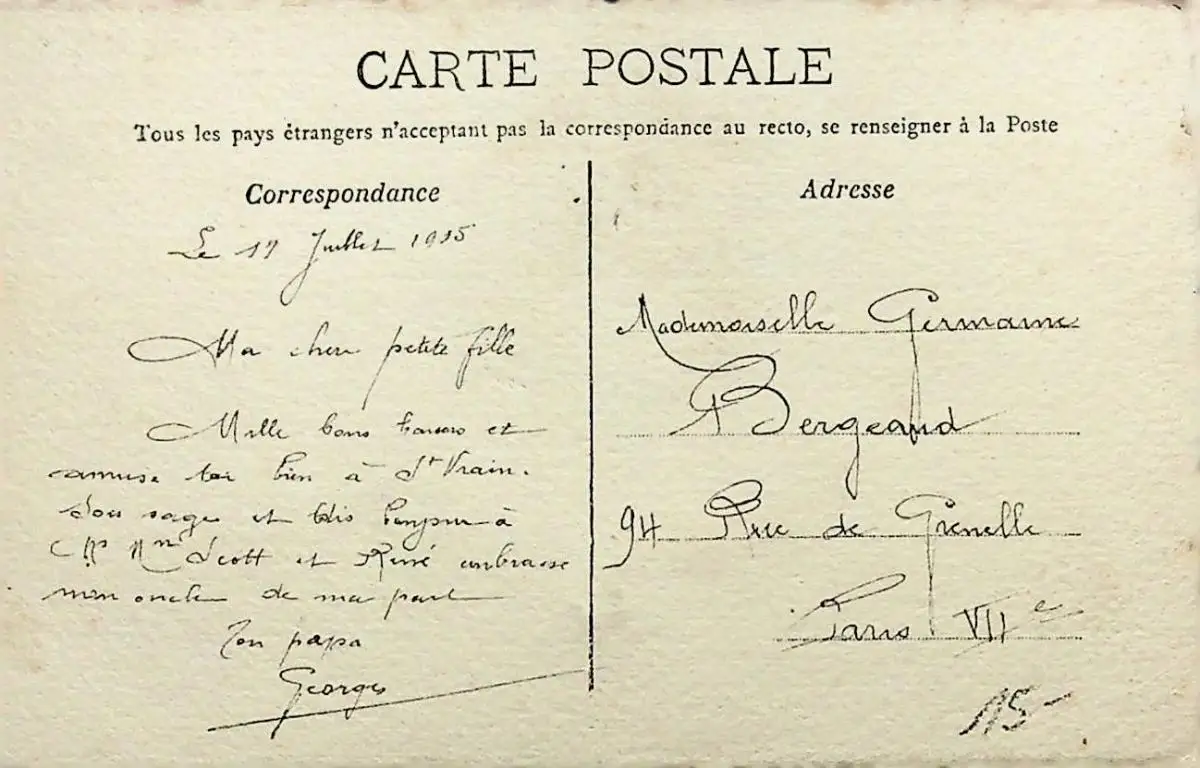 CARTE POSTALE
Tous les pays étrangers n'acceptant pas la correspondance au recto, se renseigner à la Poste
Correspondance
Adresse
Le 17 Juillet 1915
Ma cher petite fille
Mille bons baisers et
amuse toi bien à St Vrain.
sois sage et dis bonjour à
Mr Mme Scott et René embrasse
mon oncle de ma part
Ton papa
Georges
Mademoiselle Germaine
Bergeaud
94 Rue de Grenelle
Paris VIIe
15-